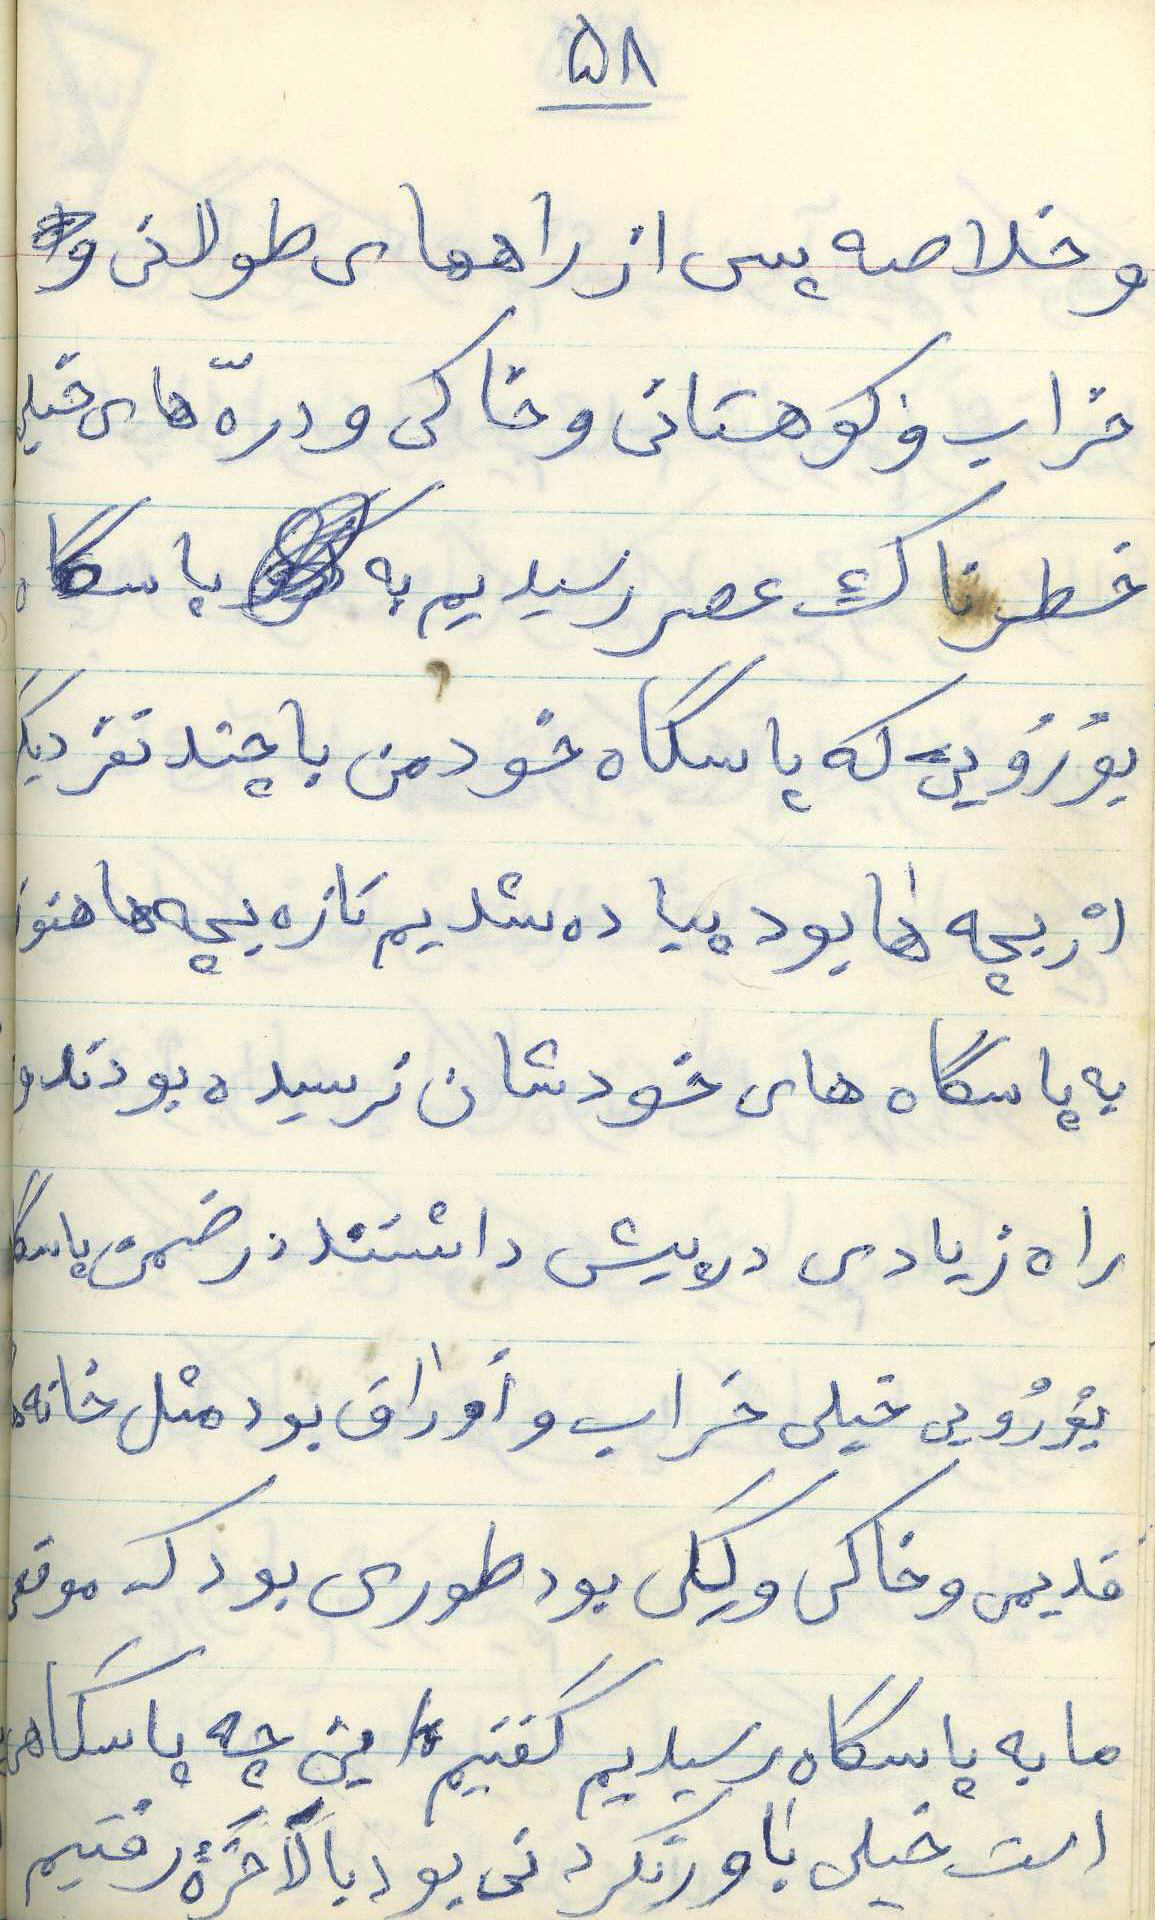 ۵۸
و خلاصه پس از راههای طولانی و
خراب و کوهستانی و خاکی و درّه های خیلی
خطرناک عصر رسیدیم به پاسگاه
یوُزوُیی که پاسگاه خود من با چند نفر دیگر
از بچه ها بود پیاده شدیم تازه بچه ها هنوز
به پاسگاه های خودشان نرسیده بودند و
راه زیادی در پیش داشتند در ضمن پاسگاه
خیلی خراب و اُوراق بود مثل خانه های
قدیمی و خاکی و گِلی بود طوری بود که موقعی
ما به پاسگاه رسیدیم گفتیم این چه پاسگاهی
است خیلی باور نکردنی بود بالاخَرهٔ رفتیم